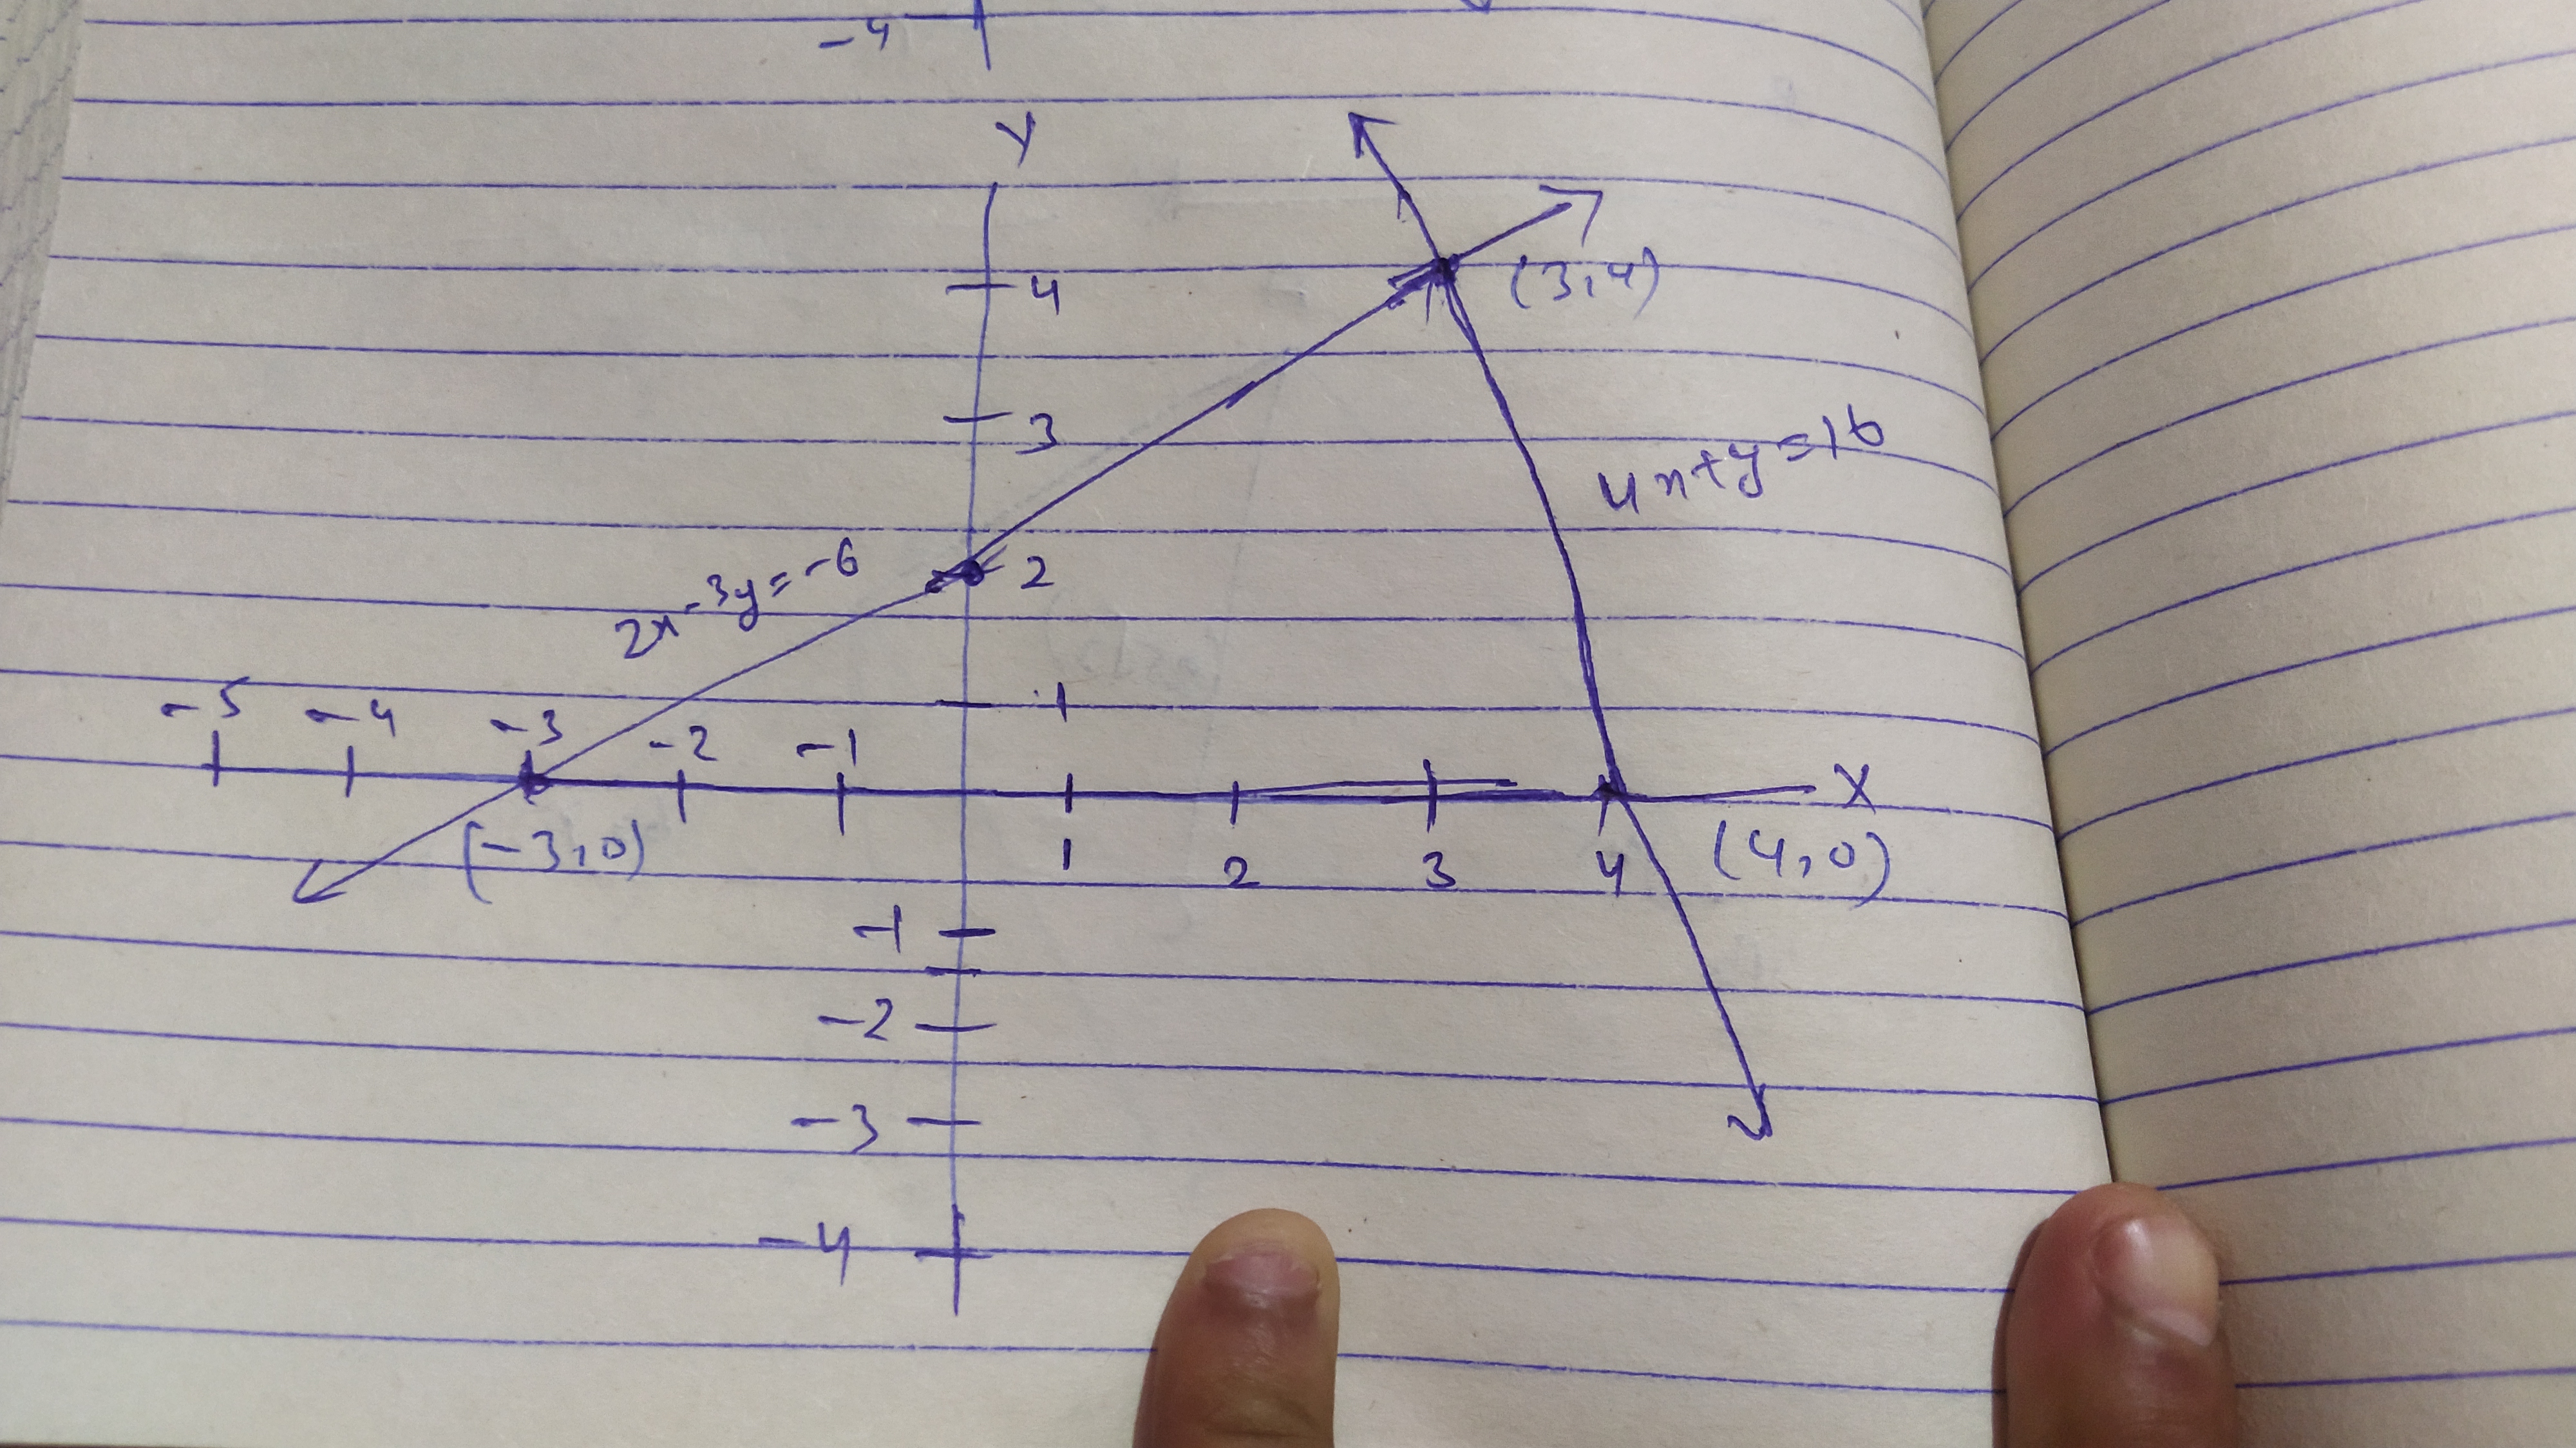 -4
Y
4
(3,4)
3
4x+y=16
2x-3y=-6
2
-5 -4 -3 -2 -1
1
X
(-3,0)
1 2 3 4 (4,0)
-1
-2
-3
-4